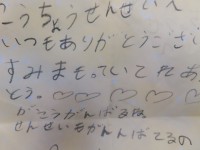 こうちょうせんせいへ
いつもありがとうござい
すみまもっていてくれてあ
とう。♡♡♡♡♡
がっこうがんばるね
せんせいもがんばてるの